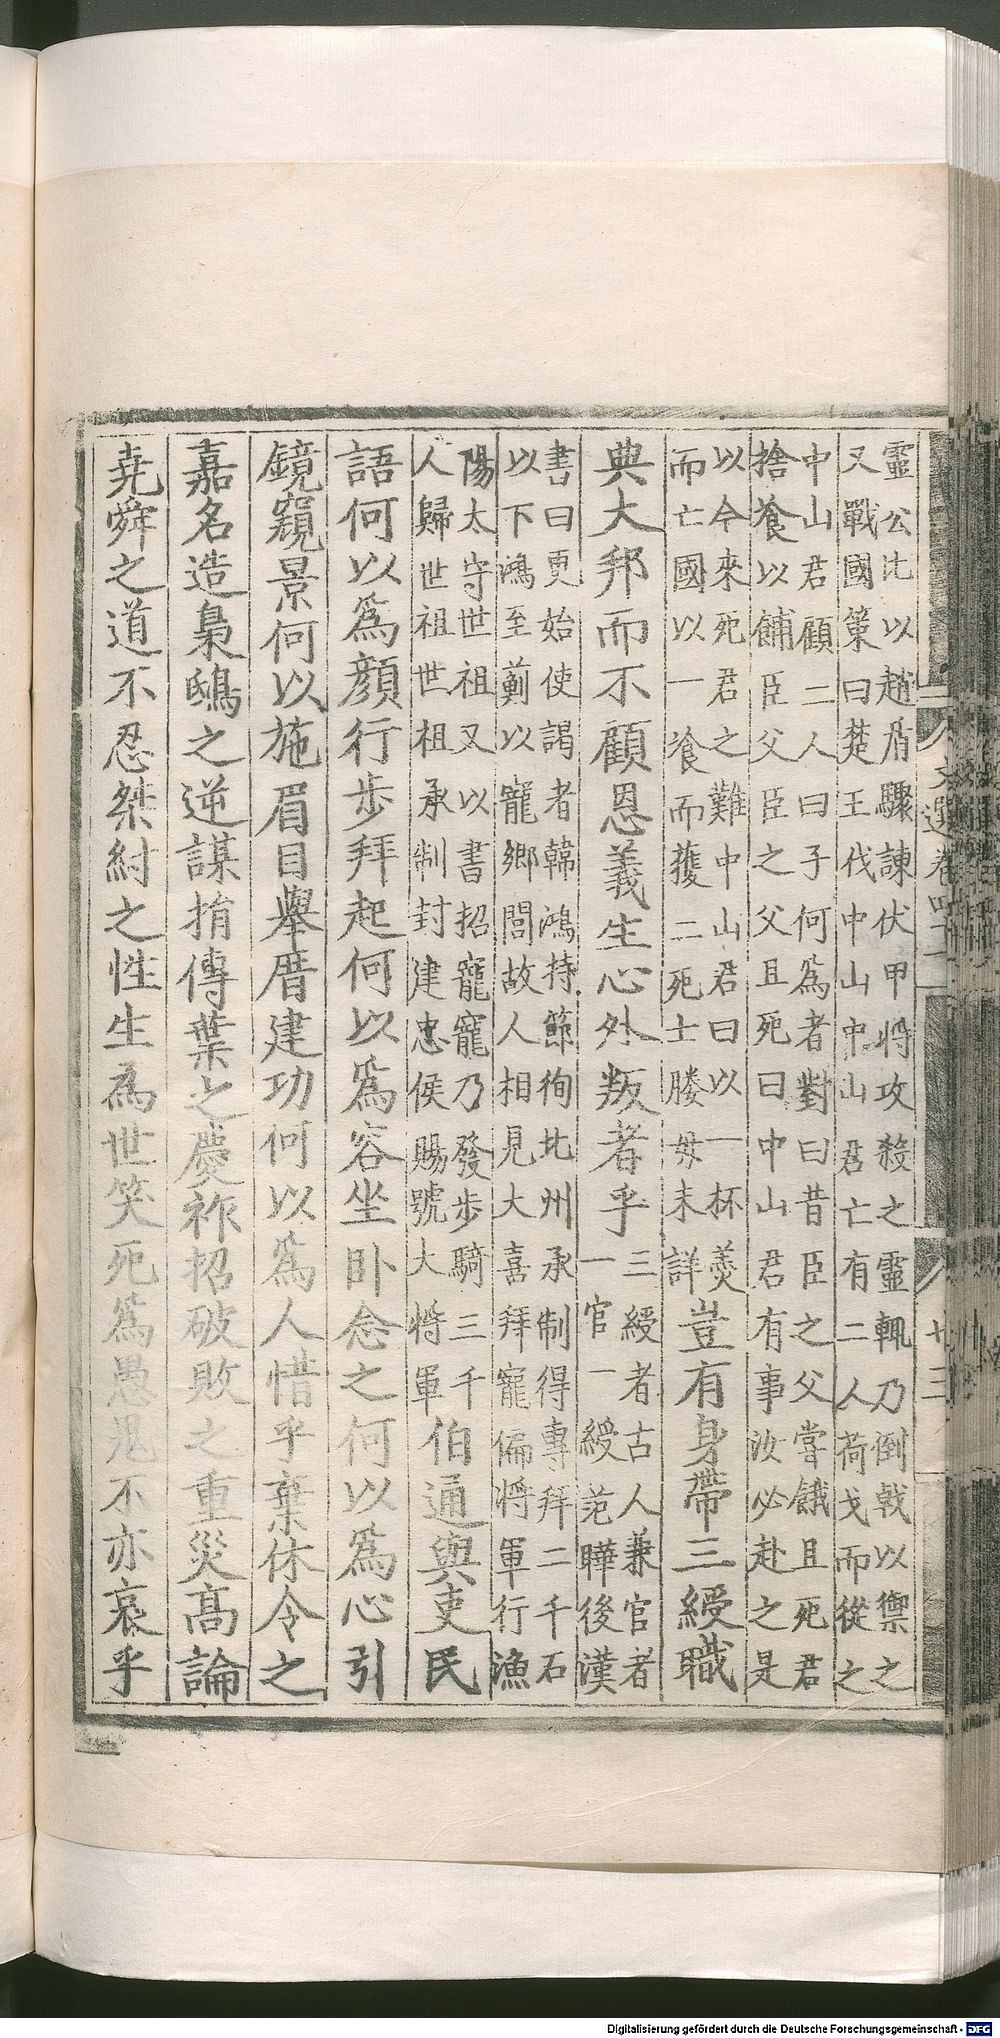 靈公比以趙盾驟諫伏甲將攻殺之靈輒乃倒戟以禦之
又戰國策曰楚王伐中山中山君亡有二人荷戈而從之
中山君顧二人曰子何為者對曰昔臣之父嘗餓且死君
捨飡以餔臣父臣之父且死曰中山君有事汝必赴之是
以今來死君之難中山君曰以一杯羹
而亡國以一飡而獲二死士媵母未詳
豈有身帶三綬職
典大邦而不顧恩義生心外叛者乎
三綬者古人兼官者
一官一綬范曄後漢
書曰更始使謁者韓鴻持節徇北州承制得專拜二千石
以下鴻至薊以寵鄉閭故人相見大喜拜寵偏將軍行漁
陽太守世祖又以書招寵寵乃發步騎三千
人歸世祖世祖承制封建忠侯賜號大將軍
伯通與吏民
語何以爲顏行步拜起何以爲容坐卧念之何以爲心引
鏡窺景何以施眉目舉厝建功何以爲人惜乎棄休令之
嘉名造梟鴟之逆謀捐傳葉之慶祚招破敗之重災高論
堯舜之道不忍桀紂之性生為世笑死爲愚鬼不亦哀乎
文選卷四十一
廿三
Digitalisierung gefördert durch die Deutsche Forschungsgemeinschaft - DFG